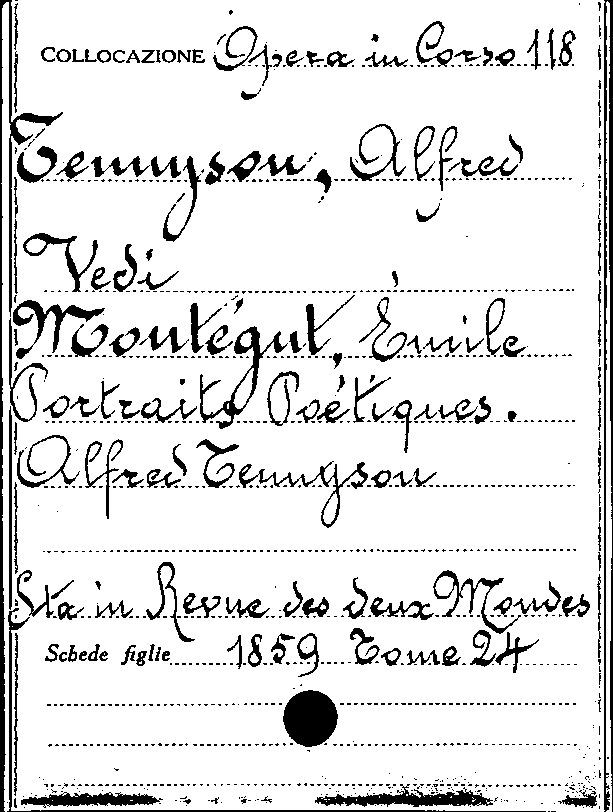 COLLOCAZIONE Opera in Corso 118
Tennyson, Alfred
Vedi
Montégut, Émile
Portraits Poétiques.
Alfred Tennyson
Sta in Revue des deux Mondes
Schede figlie 1859 Tome 24